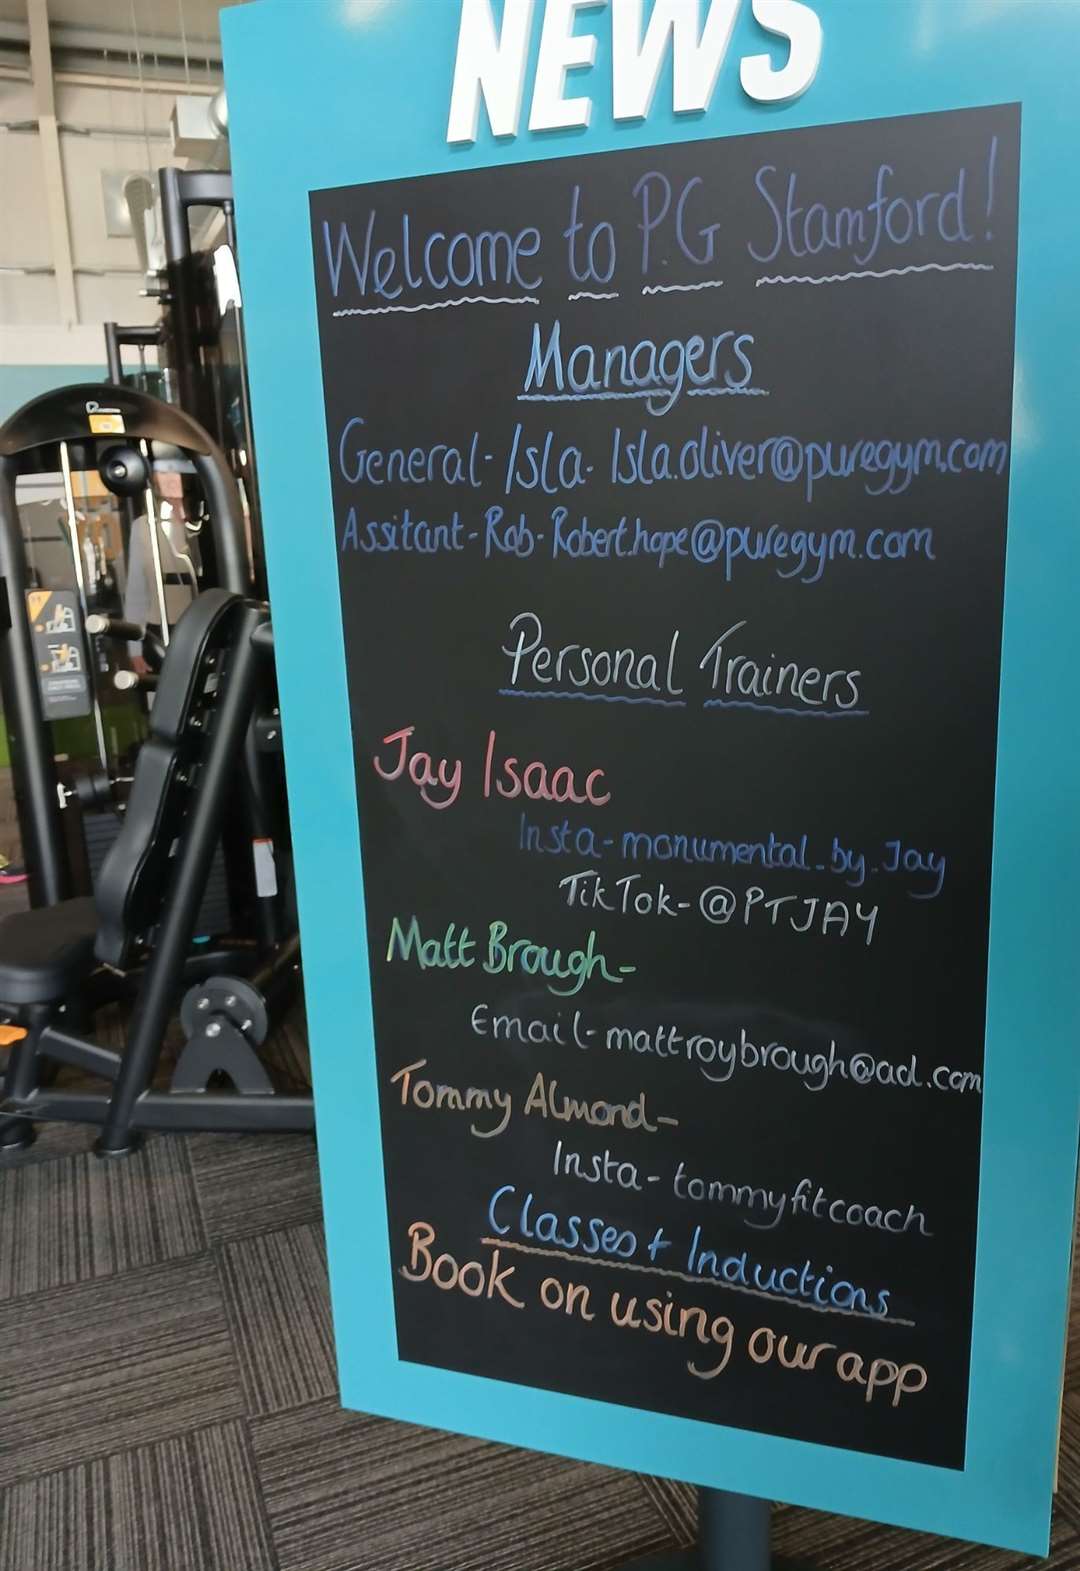 NEWS
Welcome to P.G Stamford!
Managers
General- Isla- Isla.oliver@puregym.com
Assitant- Rob- Robert.hope@puregym.com
Personal Trainers
Jay Isaac
Insta- monumental_by_Jay
TikTok- @PTJAY
Matt Brough-
Email- mattroybrough@aol.com
Tommy Almond-
Insta- tommyfitcoach
Classes + Inductions
Book on using our app